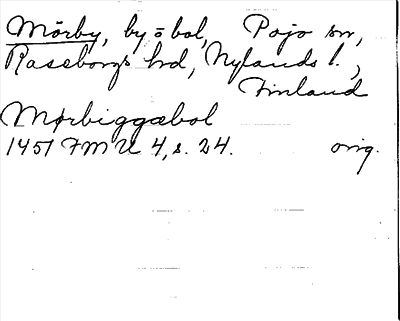 Mörby, by o bol, Pojo sn,
Raseborgs hd, Nylands l.,
Finland
Mørbiggæbol
1451 FMU 4, s. 24. orig.